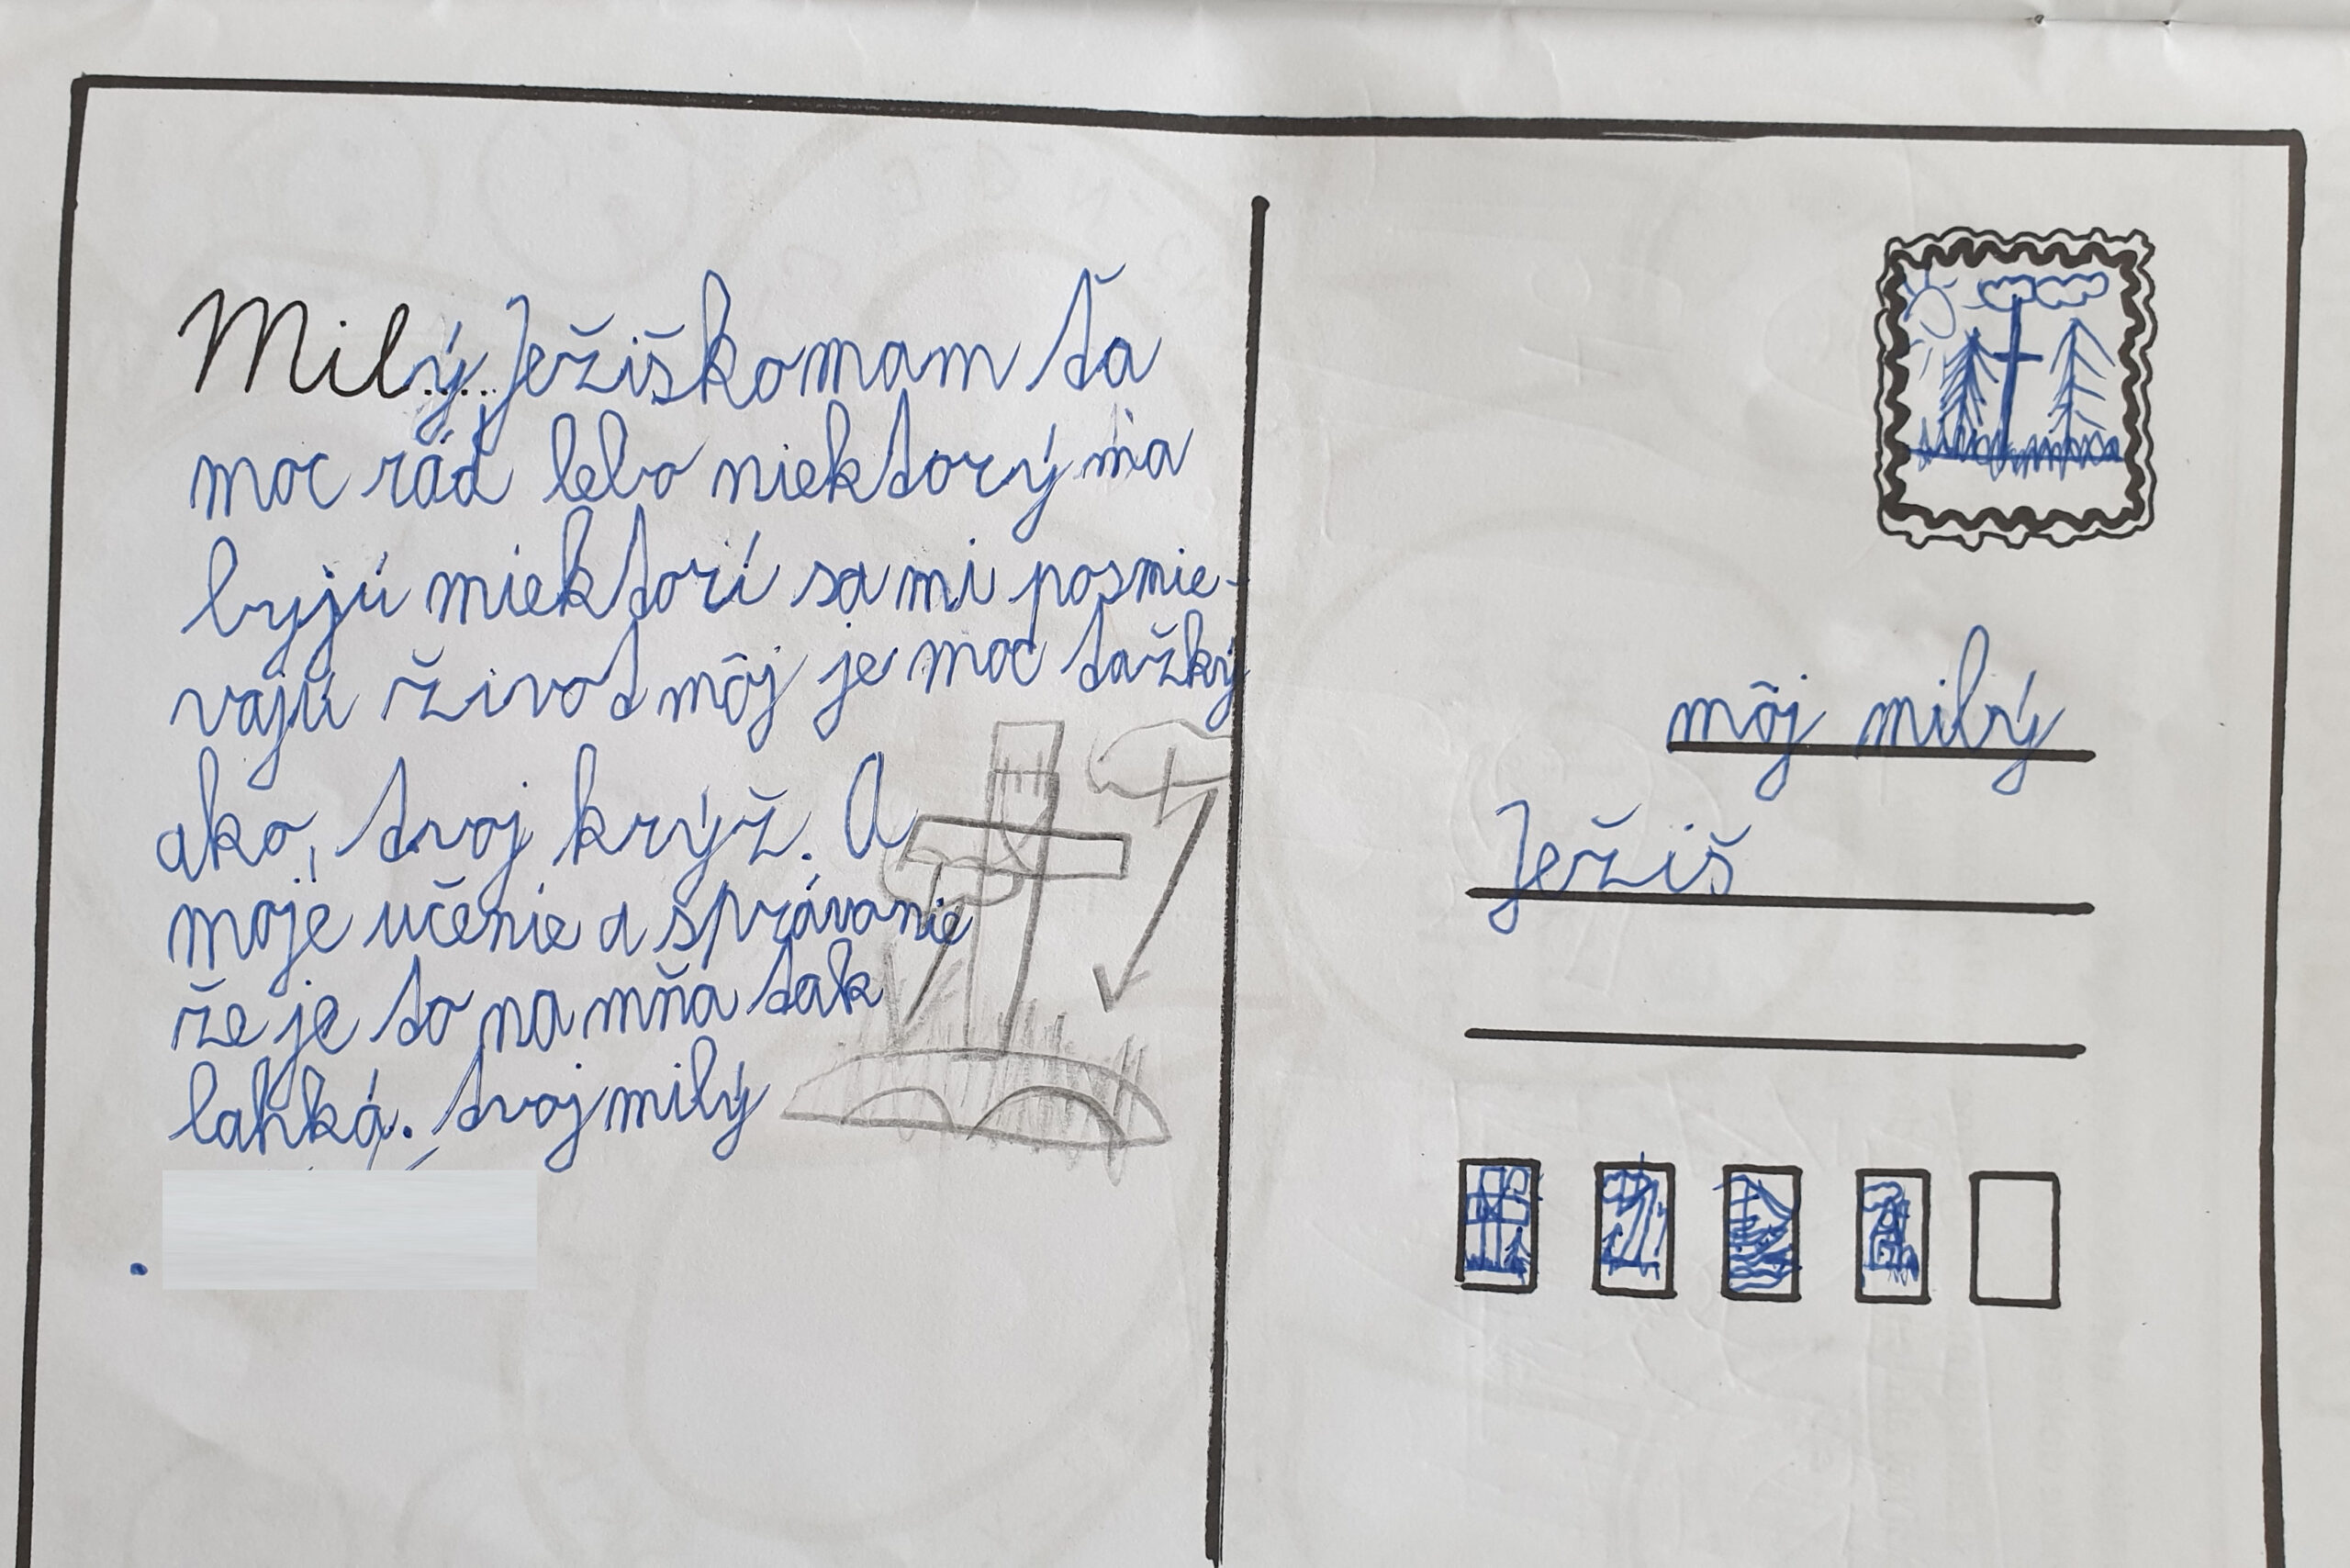 Milý Ježiškomam ťa
moc rád lebo niektorý ma
byjú niektorí sa mi posmie-
vajú život môj je moc ťažký
ako, tvoj krýž. A
moje učenie a správanie
že je to na mňa tak
lahká. tvoj milý
môj milý
Ježiš